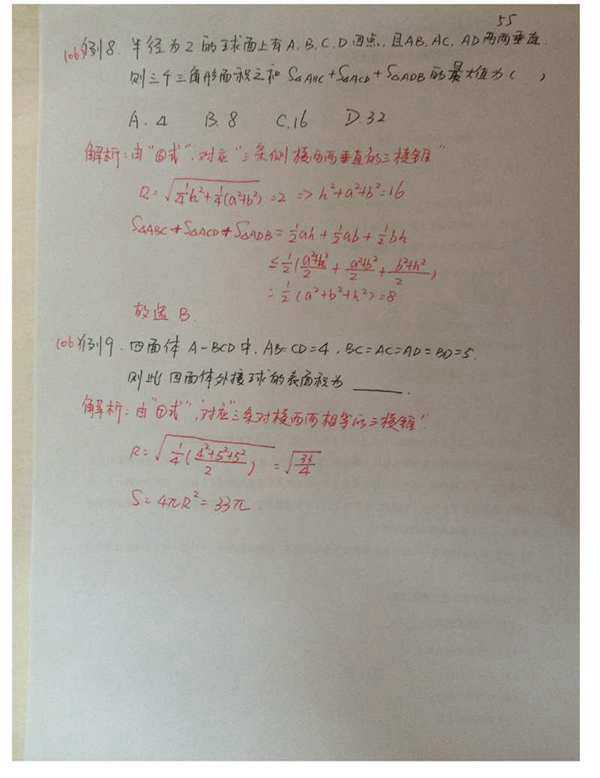 55
106 例8. 半径为2的球面上有A.B.C.D四点,且AB,AC,AD两两垂直
则三个三角形面积之和 S△ABC+S△ACD+S△ADB的最大值为( )
A. 4 B. 8 C. 16 D. 32
解析:由"回式",对应"三条侧棱两两垂直的三棱锥"
R=√(¼h²+¼(a²+b²))=2 => h²+a²+b²=16
S△ABC+S△ACD+S△ADB=½ah+½ab+½bh
≤½((a²+h²)/2+(a²+b²)/2+(b²+h²)/2)
=½(a²+b²+h²)=8
故选B.
106 例9. 四面体A-BCD中, AB=CD=4, BC=AC=AD=BD=5.
则此四面体外接球的表面积为 ____.
解析:由"回式",对应"三条对棱两两相等的三棱锥"
R=√(¼((4²+5²+5²)/2))=√(33/4)
S=4πR²=33π